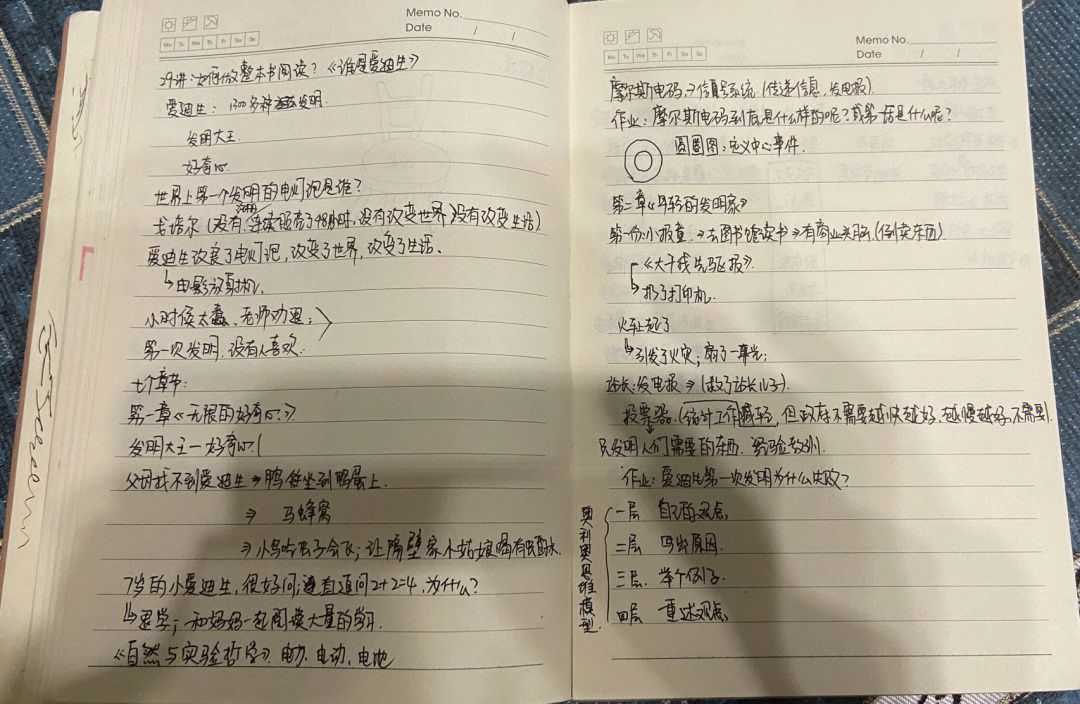 Memo No.
Date / /
Mo Tu We Th Fr Sa Su
29讲:如何做整本书阅读?《谁是爱迪生》
爱迪生:1300多种发明.
发明大王.
好奇心.
世界上第一个发明的电灯泡是谁?
戈培尔(没有连续照亮了48小时,没有改变世界 没有改变生活)
爱迪生改良了电灯泡,改变了世界,改变了生活、
↳电影放射机.
小时候太蠢、老师劝退;
第一次发明.没有人喜欢.
七个章节:
第一章《无限的好奇心.》
发明大王—好奇心!
父母找不到爱迪生⇒鸭 坐到鸭蛋上.
⇒ 马蜂窝
⇒小鸟吃虫子会飞;让隔壁家小姑娘喝有虫的水.
7岁的小爱迪生,很好问;一直追问2+2=4,为什么?
↳退学;一和妈妈一起阅读大量的学习.
《自然与实验哲学》.电力、电动、电池
Memo No.
Date / /
Mo Tu We Th Fr Sa Su
摩尔斯电码→信号系统.(传递信息,发电报)
作业:摩尔斯电码到底是什么样的呢?或第一句话是什么呢?
圆圈图:定义中心事件.
第二章《年轻的发明家》
第一份:小报童.⇒去图书馆读书⇒有商业头脑.(倒卖东西)
《大干线先驱报》.
↳打印机.
火车上起了
↳引发了火灾;扇了一耳光;
站长:发电报⇒(救了站长儿子).
投票器.(统计工作减轻,但政府不需要越快越好,越慢越好,不需要)
只发明人们需要的东西.经验教训.
作业:爱迪生第一次发明为什么失败?
奥利奥思维模型
一层 自己的观点
二层 写出原因.
三层.举个例子.
四层 重述观点